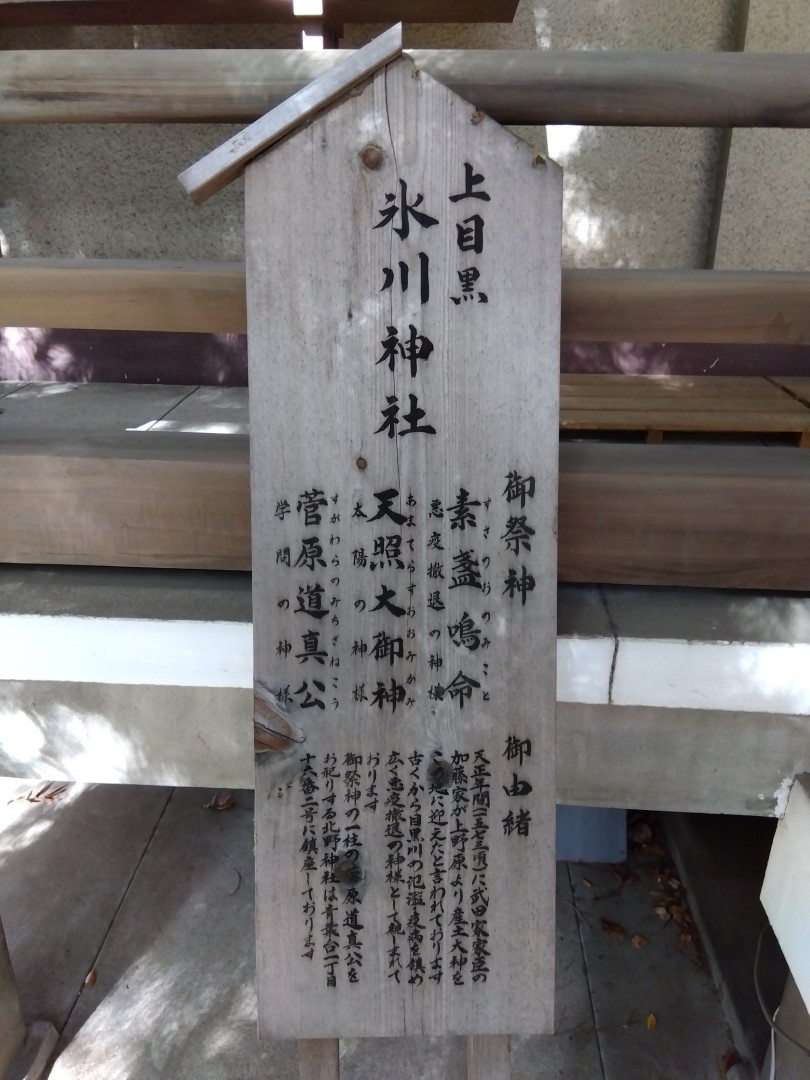 上目黒
氷川神社
御祭神
すさのおのみこと
素盞嗚命
悪疫撤退の神様
あまてらすおおみかみ
天照大御神
太陽の神様
すがわらのみちざねこう
菅原道真公
学問の神様
御由緒
天正年間(一五七三頃)に武田家家臣の
加藤家が上野原より産土大神を
この地に迎えたと言われております
古くから目黒川の氾濫・疫病を鎮め
広く悪疫撤退の神様として親しまれて
おります
御祭神の一柱の菅原道真公を
お祀りする北野神社は青葉台一丁目
十六番二号に鎮座しております